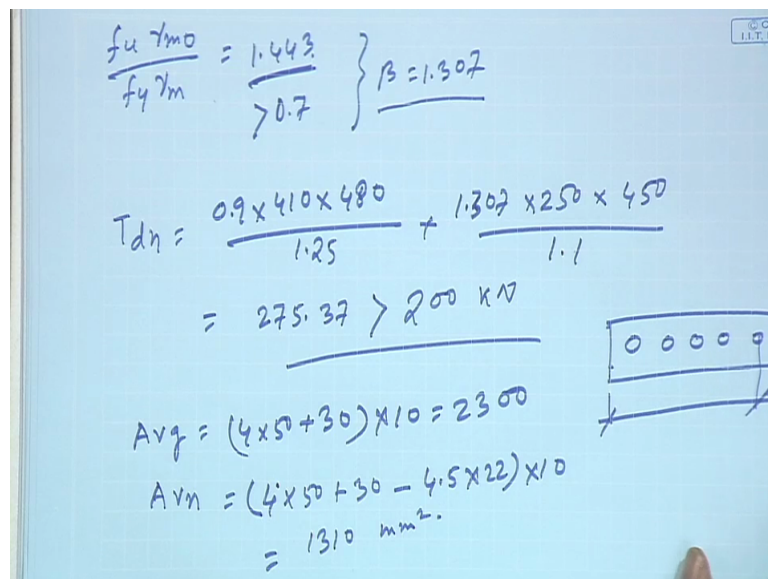 © C
I.I.T.
fu γmo / fy γm = 1.443 > 0.7 } β = 1.307
Tdn = 0.9 x 410 x 480 / 1.25 + 1.307 x 250 x 450 / 1.1
= 275.37 > 200 KN
Avg = (4x50+30) x 10 = 2300
Avn = (4x50+30 - 4.5x22) x 10
= 1310 mm².